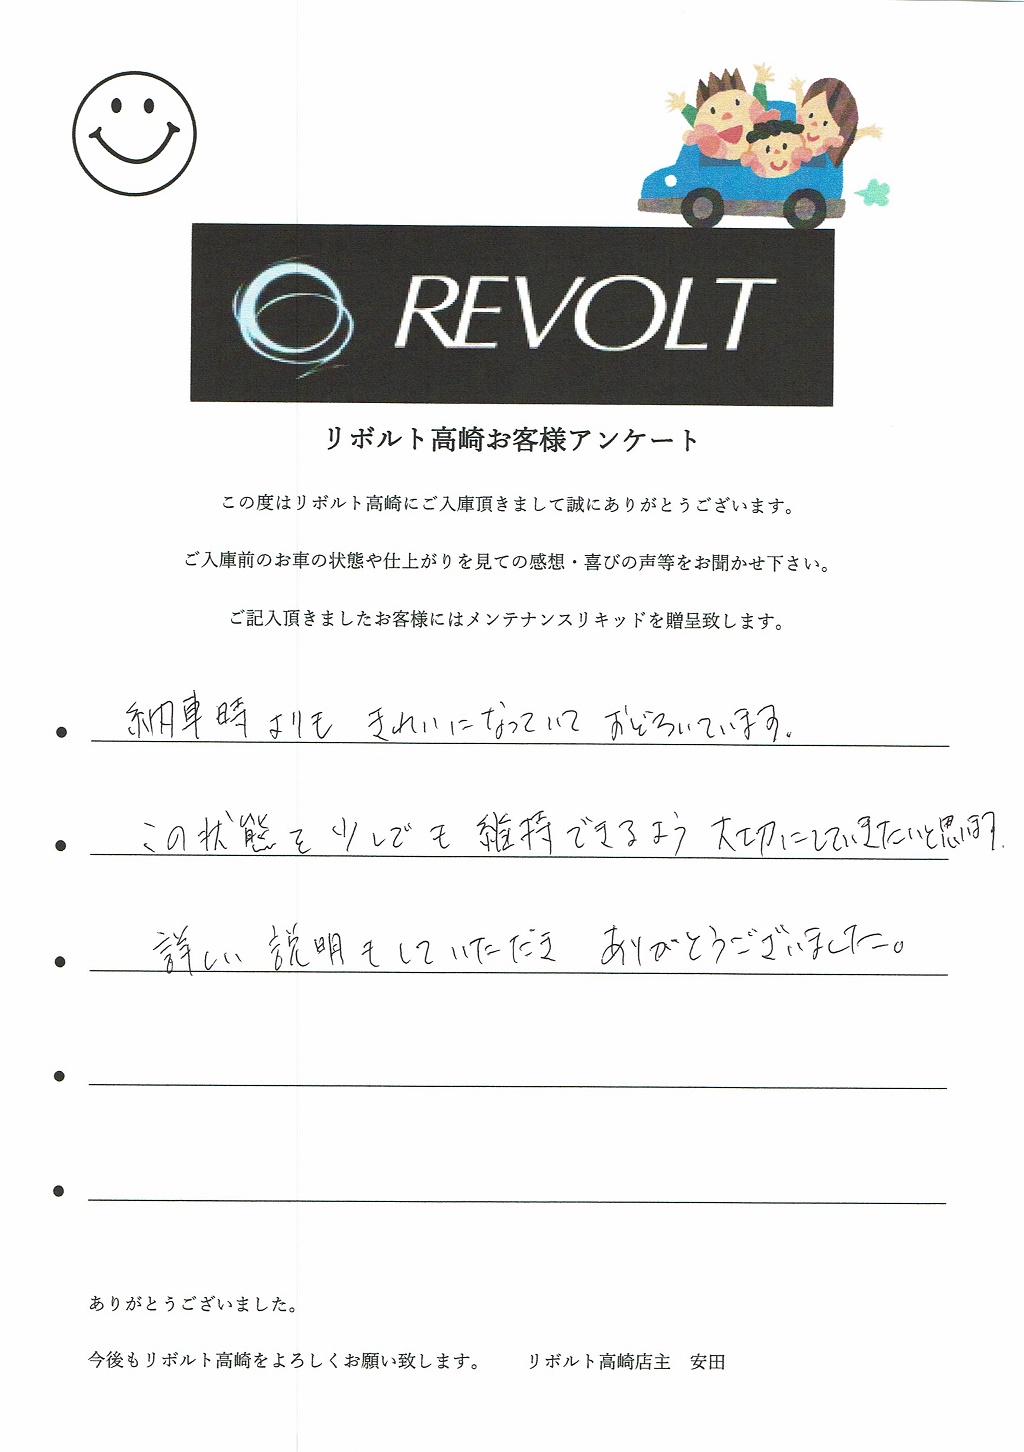 REVOLT
リボルト高崎お客様アンケート
この度はリボルト高崎にご入庫頂きまして誠にありがとうございます。
ご入庫前のお車の状態や仕上がりを見ての感想・喜びの声等をお聞かせ下さい。
ご記入頂きましたお客様にはメンテナンスリキッドを贈呈致します。
● 納車時よりも きれいになっていて おどろいています。
● この状態を少しでも 維持できるよう 大切にしていきたいと思います.
● 詳しい 説明もしていただき ありがとうございました。
●
●
ありがとうございました。
今後もリボルト高崎をよろしくお願い致します。 リボルト高崎店主 安田